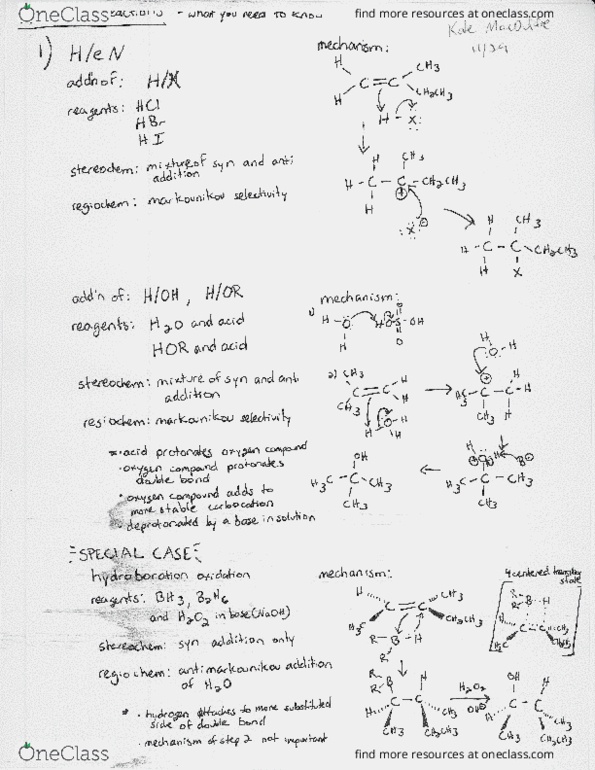 OneClass
find more resources at oneclass.com
- WHAT YOU NEED TO KNOW
Kate
11/29
1) H/eN
mechanism:
addn of: H/X
reagents: HCl
HBr
HI
stereochem: mixture of syn and anti
addition
regiochem: markovnikov selectivity
H
CH3
C=C
H
CH2CH3
H - X:
H
CH3
H - C - C - CH2CH3
H
:X:
H
CH3
H - C - C - CH2CH3
H
X
add'n of: H/OH, H/OR
mechanism:
reagents: H2O and acid
HOR and acid
stereochem: mixture of syn and anti
addition
regiochem: markovnikov selectivity
* · acid protonates oxygen compound
· oxygen compound protonates
double bond
· oxygen compound adds to
more stable carbocation
· deprotonated by a base in solution
1)
H - O
H
HO-S-OH
O
O
2)
CH3
C=C
H
CH3
H
H3C - C - C - H
CH3
H
OH
H3C - C - CH3
CH3
H3C - C - CH3
CH3
B
SPECIAL CASE
hydroboration oxidation
mechanism:
4 centered transition
state
reagents: BH3, B2H6
and H2O2 in base (NaOH)
stereochem: syn addition only
regiochem: antimarkovnikov addition
of H2O
* · hydrogen attaches to more substituted
side of double bond
· mechanism of step 2 not important
H
CH3
C=C
H3C
CH2CH3
R - B - H
R
R
R - B
H
H
C - C
CH3
CH3
CH2CH3
H2O2
OH
OH
H
C - C
CH3
CH3
CH2CH3
OneClass
find more resources at oneclass.com